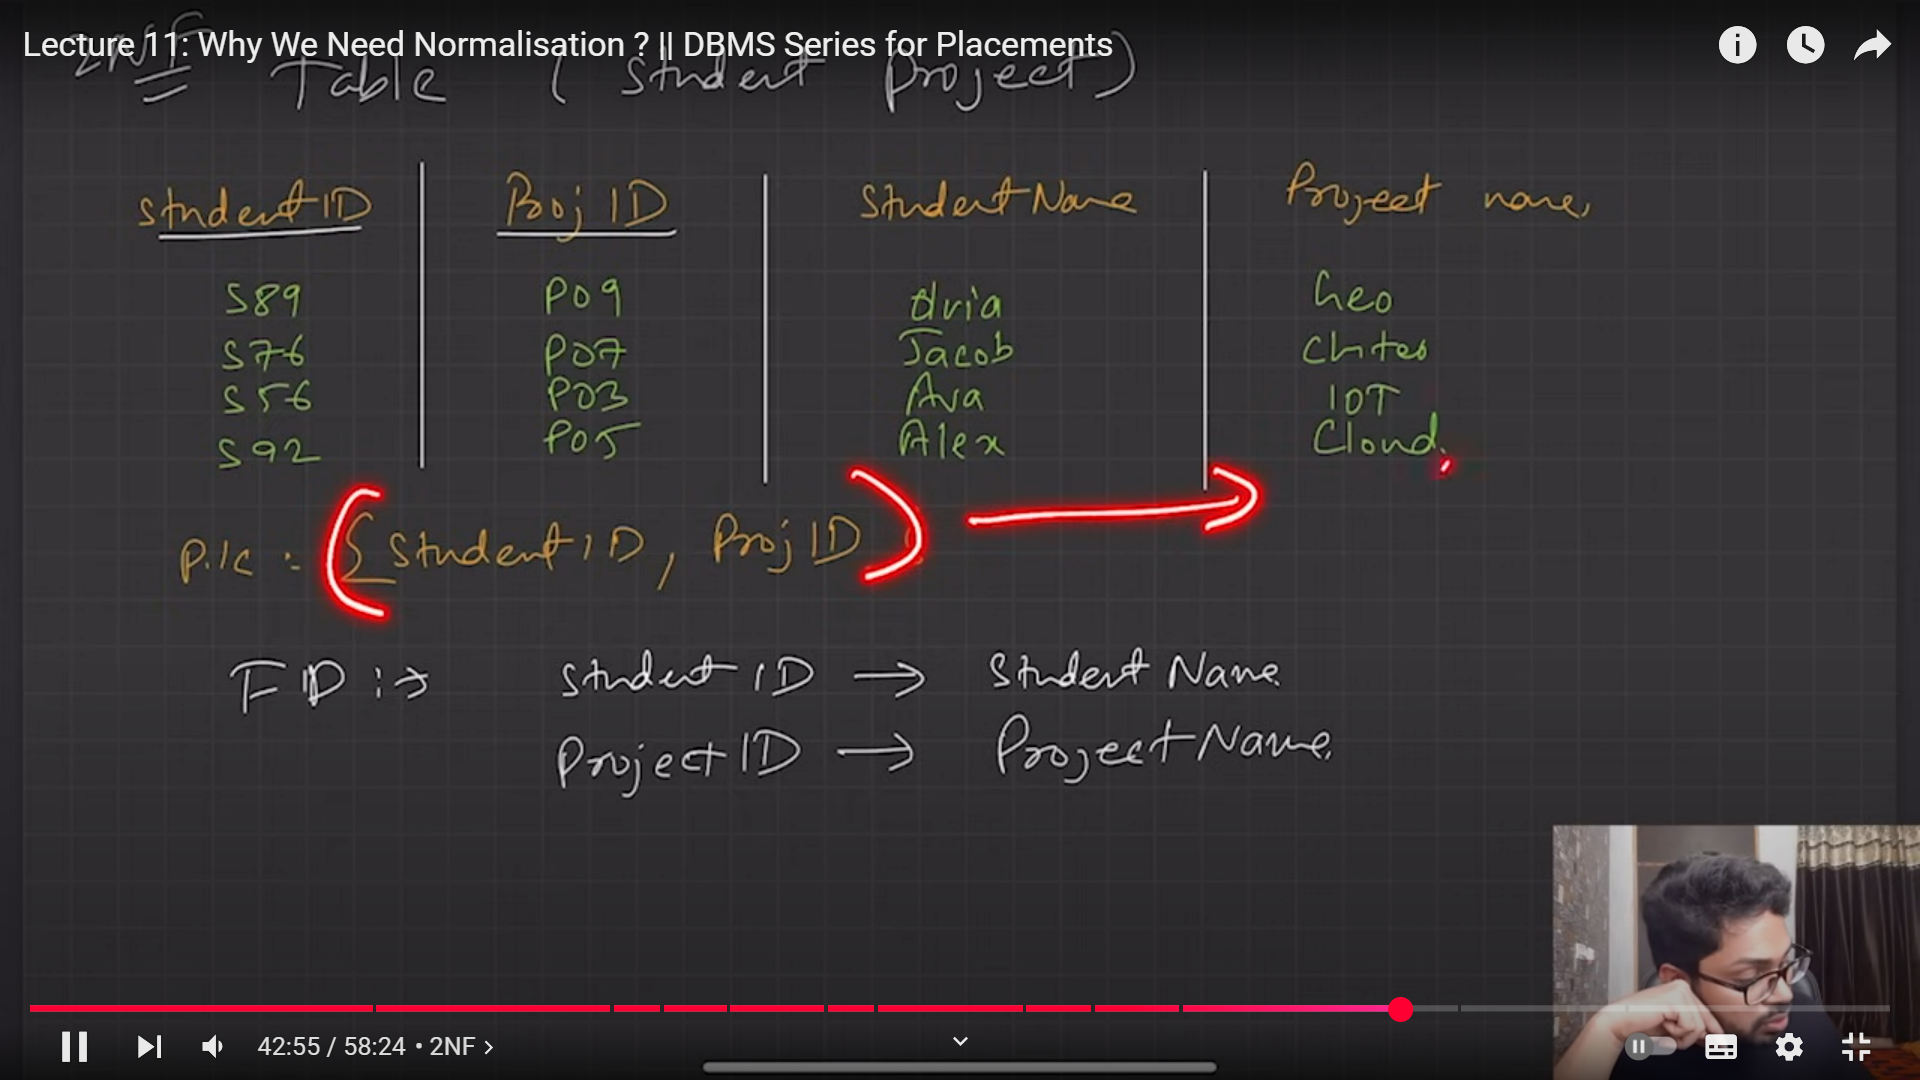 Lecture 11: Why We Need Normalisation ? || DBMS Series for Placements
2NF Table ( Student Project)
StudentID Proj ID Student Name Project name,
S89 P09 Geo
S76 P07 Jacob
S56 P03 Ava IOT
S92 P05 Alex Cloud.
P.K : { Student ID, Proj ID
FD :→ Student ID → Student Name
Project ID → Project Name.
42:55 / 58:24 • 2NF >